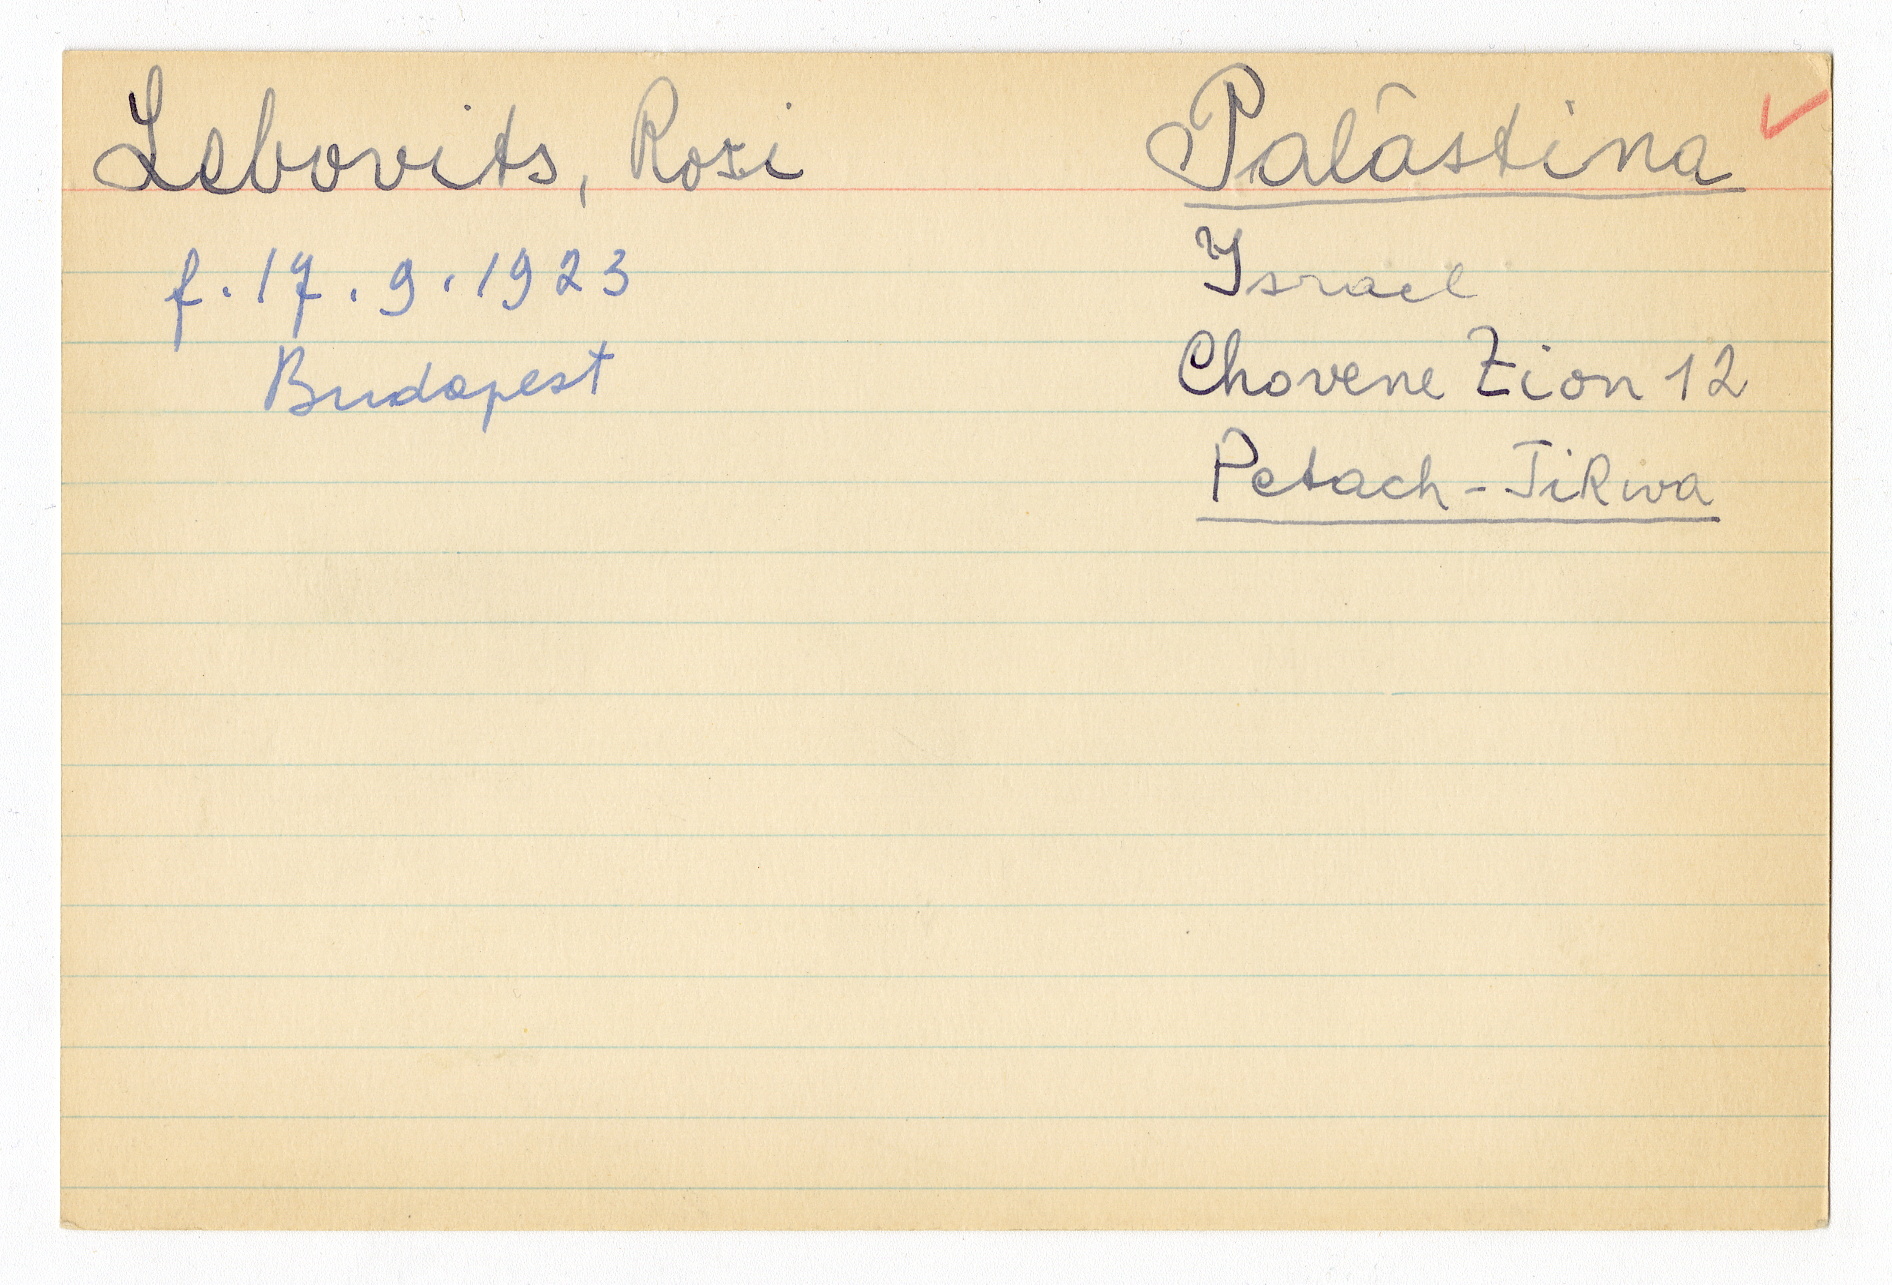 Lebovits, Rosi
f. 17. 9. 1923
Budapest
Palästina
Israel
Chovene Zion 12
Petach-Tikwa